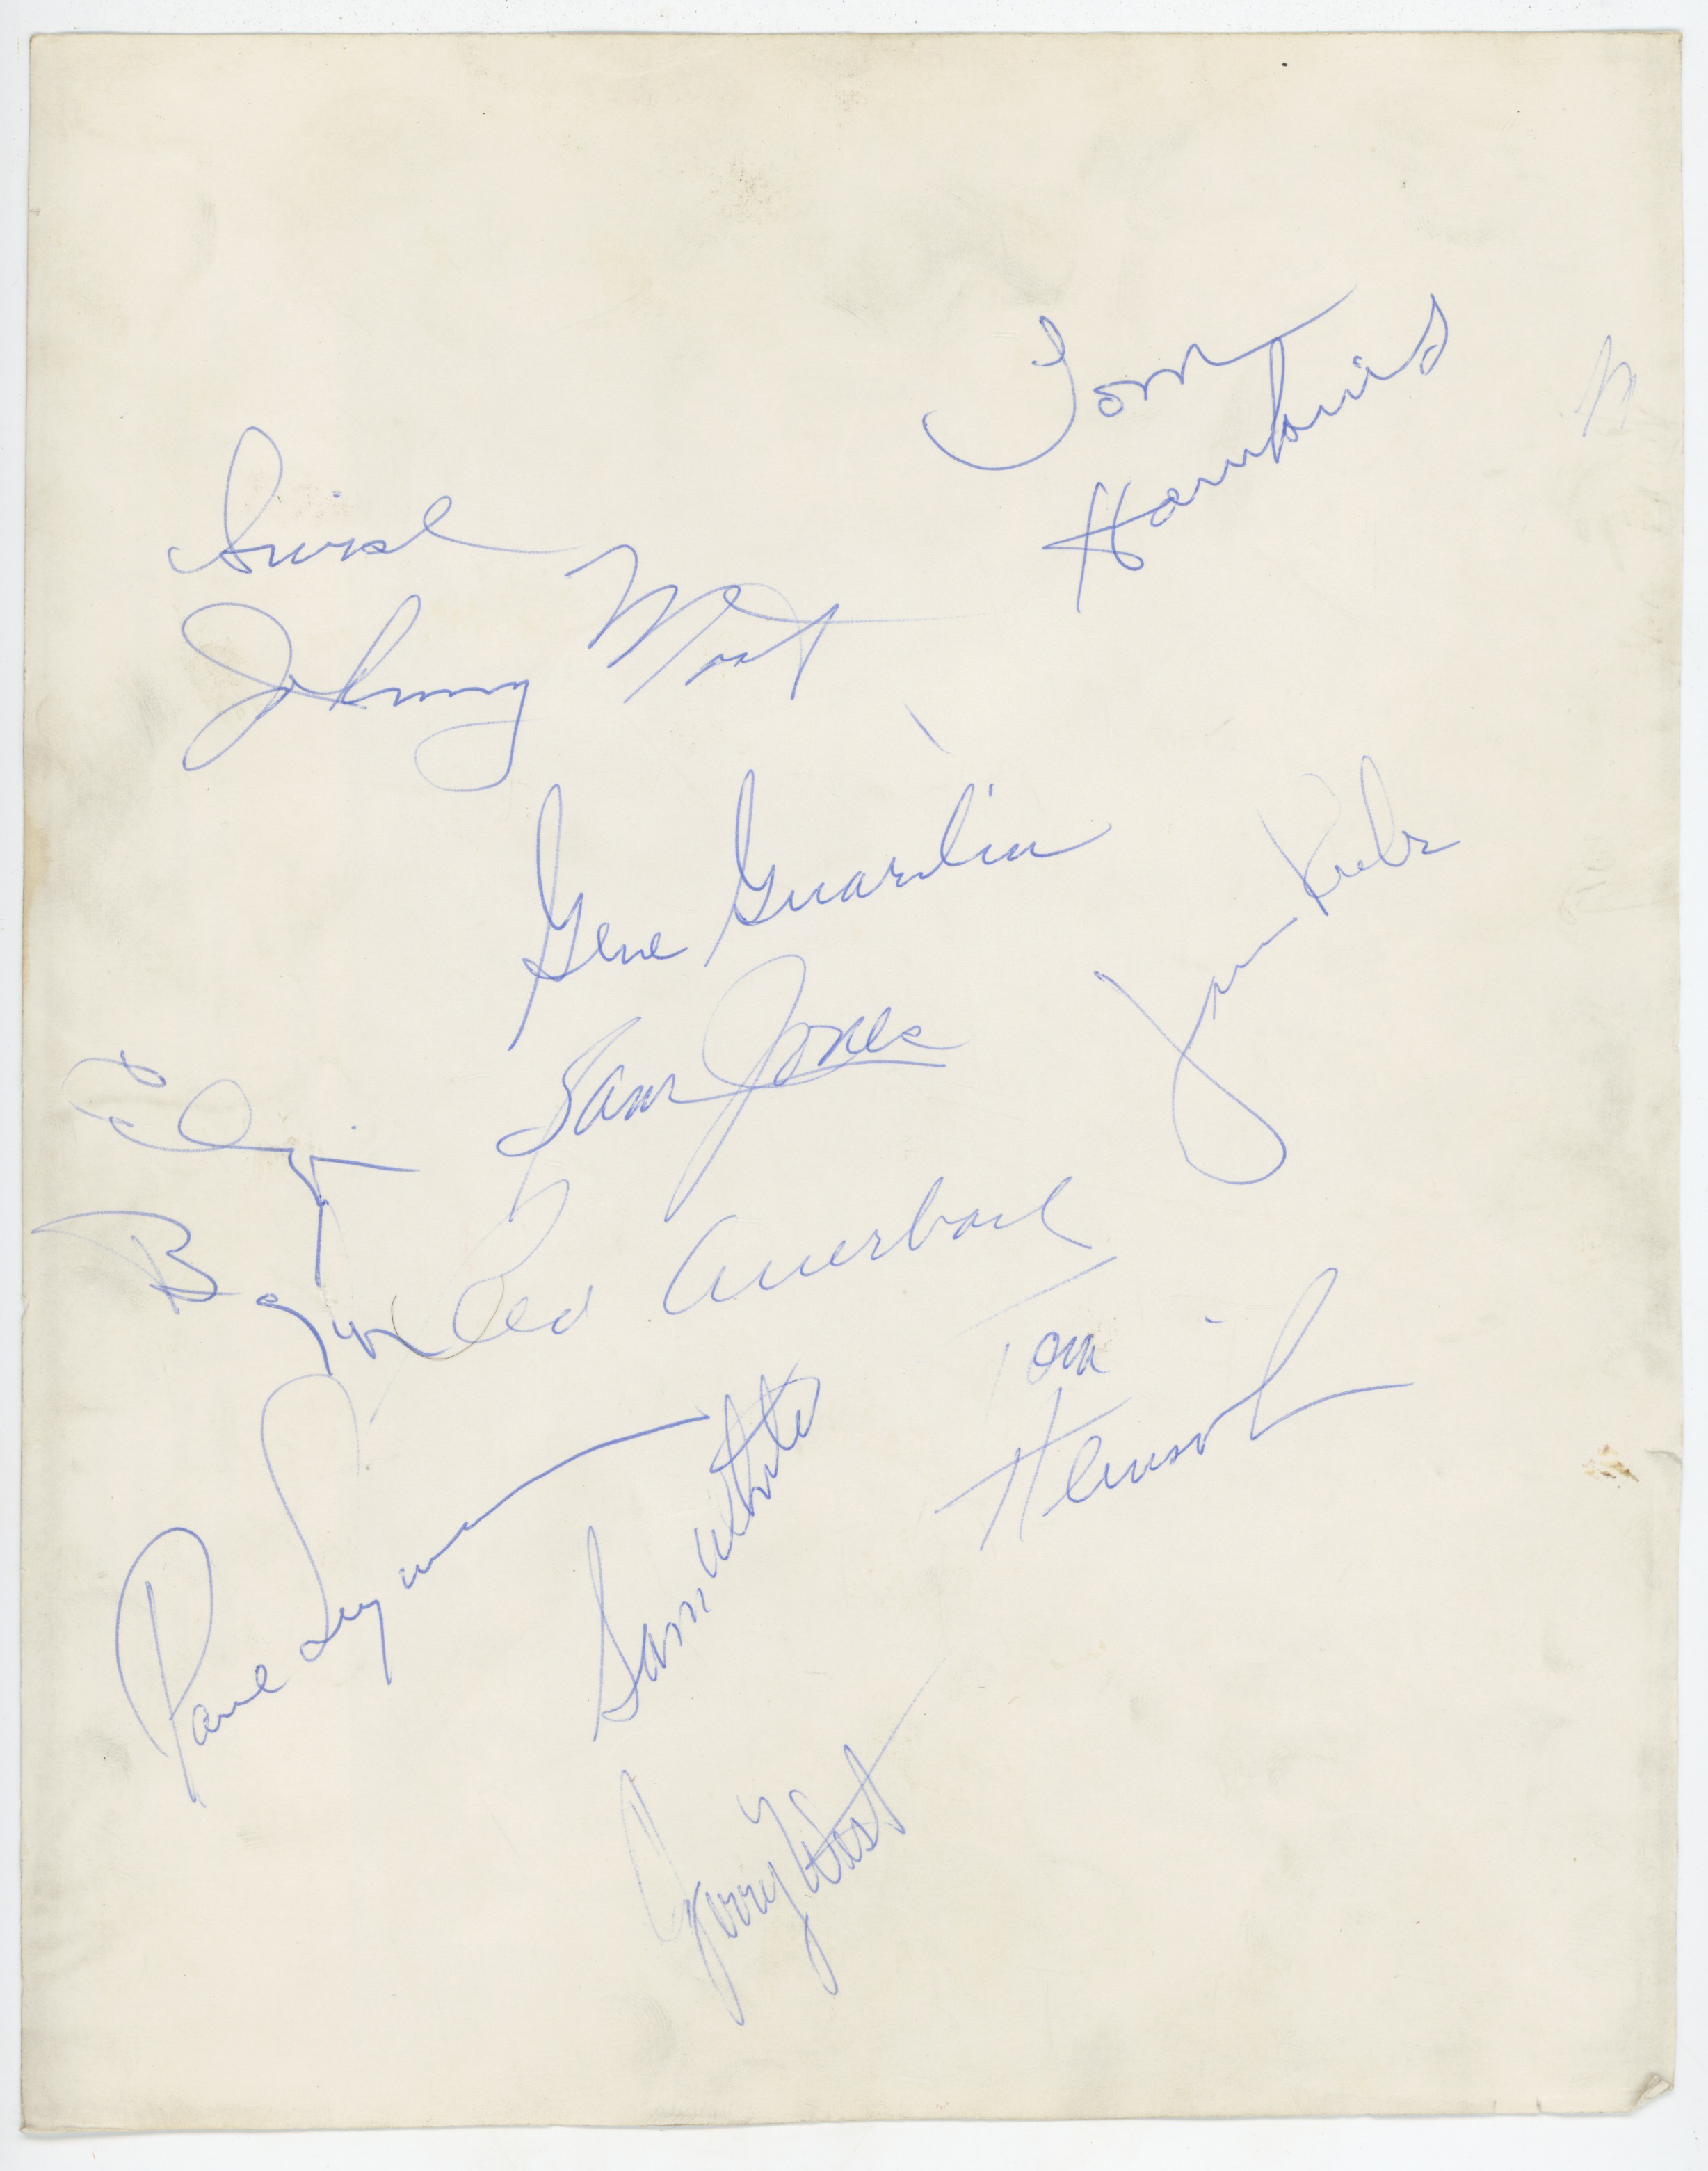 Tom
Hawkins
Johnny Most
Gene Guarilia
Jim Krebs
Sam Jones
Elgin
Baylor
Red Auerbach
Tom
Heinsohn
Paul Seymour
Sam White
Jerry West